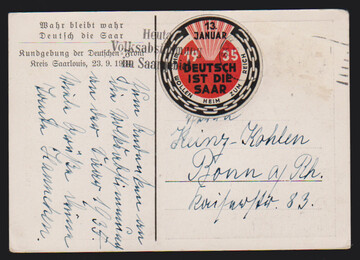 Wahr bleibt wahr
Deutsch die Saar
Kundgebung der Deutschen Front
Kreis Saarlouis, 23. 9. 1934
Heute
Volksabstimmung
im Saargebiet
13. JANUAR
19 35
DEUTSCH
IST DIE
SAAR
SOLLEN HEIM ZUM REICH
Zum Andenken an
die Volksabstimmung
an der Saar 1935.
Viele Grüße Deine
Tante Hannchen.
Heinz Kohlen
Bonn a/Rh.
Kaiserstr. 83.